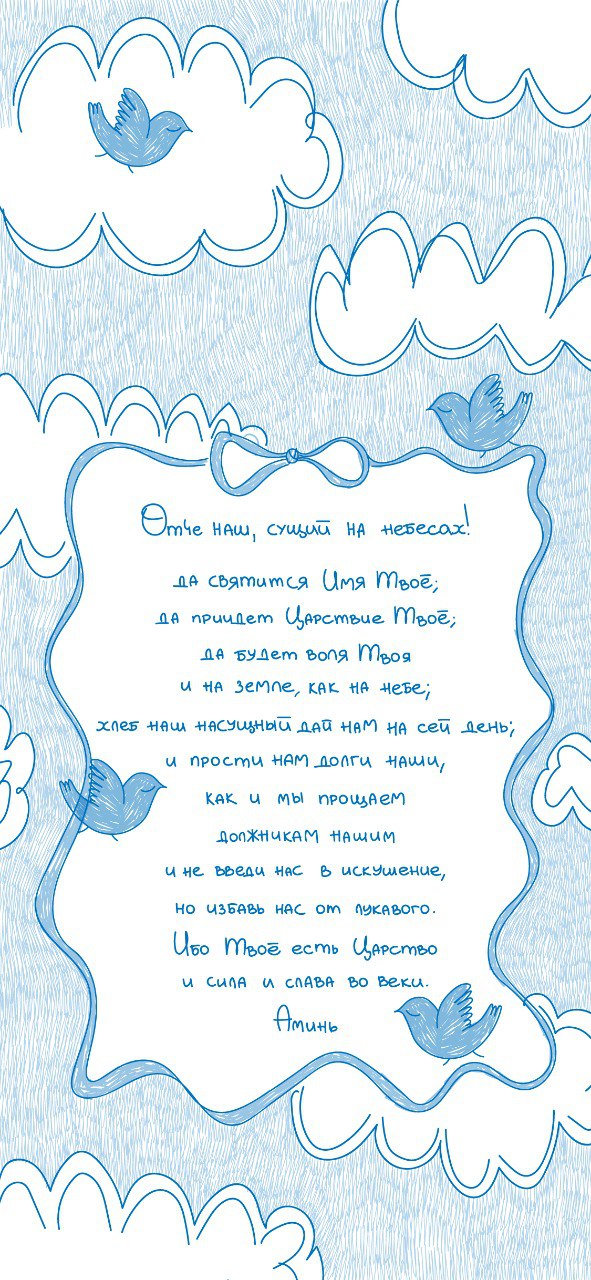 Отче наш, сущий на небесах!
да святится Имя Твоё;
да приидет Царствие Твоё;
да будет воля Твоя
и на земле, как на небе;
хлеб наш насущный дай нам на сей день;
и прости нам долги наши,
как и мы прощаем
должникам нашим
и не введи нас в искушение,
но избавь нас от лукавого.
Ибо Твоё есть Царство
и сила и слава во веки.
Аминь